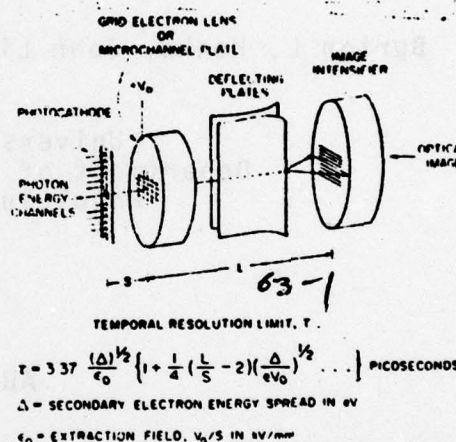 GRID ELECTRON LENS
OR
MICROCHANNEL PLATE
IMAGE
INTENSIFIER
+V₀
DEFLECTING
PLATES
PHOTOCATHODE
PHOTON
ENERGY
CHANNELS
OPTICAL
IMAGE
S
L
63-1
TEMPORAL RESOLUTION LIMIT, T.
τ = 3.37 (Δ)^1/2/ε₀ {1 + 1/4 (L/S - 2)(Δ/eV₀)^1/2 ...} PICOSECONDS
Δ = SECONDARY ELECTRON ENERGY SPREAD IN eV
ε₀ = EXTRACTION FIELD, V₀/S IN kV/mm